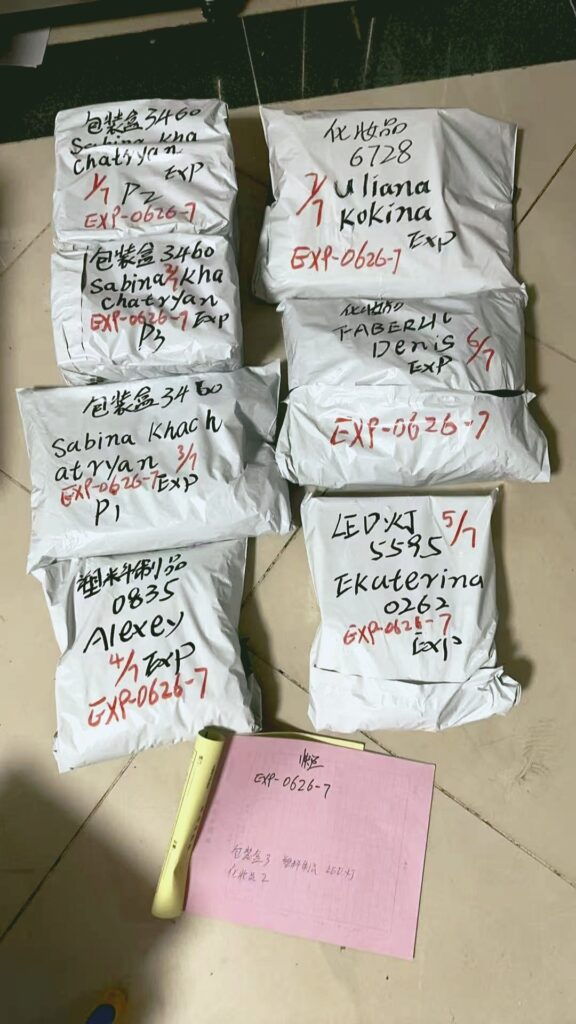 包装盒3460
Sabina Kha
chatryan
Exp
1/7 P2
EXP-0626-7
包装盒3460
Sabina 2/7 Kha
chatryan
EXP-0626-7 Exp
P3
包装盒3460
Sabina Khach
atryan 3/7
EXP-0626-7 Exp
P1
塑料制品
0835
Alexey
4/7 Exp
EXP-0626-7
化妆品
6728
7/7 Uliana
Kokina
Exp
EXP-0626-7
化妆品
FABERLIC
Denis 6/7
Exp
EXP-0626-7
LED灯 5/7
5595
Ekaterina
0262
EXP-0626-7
Exp
EXP-0626-7
包装盒3 塑料制品 LED灯
化妆品2